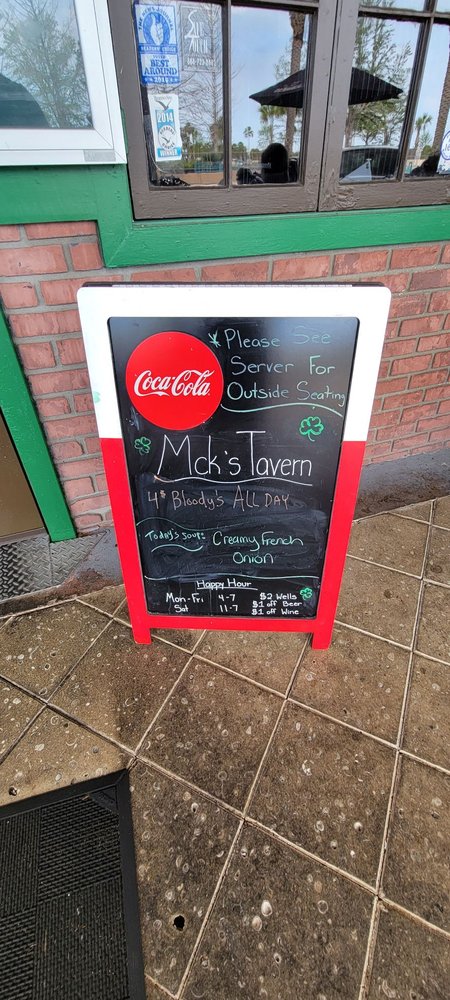 BEST
AROUND
2014
WINNER
Coca-Cola
*Please See
Server For
Outside Seating
Mck's Tavern
4$ Bloody's ALL DAY
Today's Soup: Creamy French
Onion
Happy Hour
Mon-Fri 4-7 $2 Wells
Sat 11-7 $1 off Beer
$1 off Wine